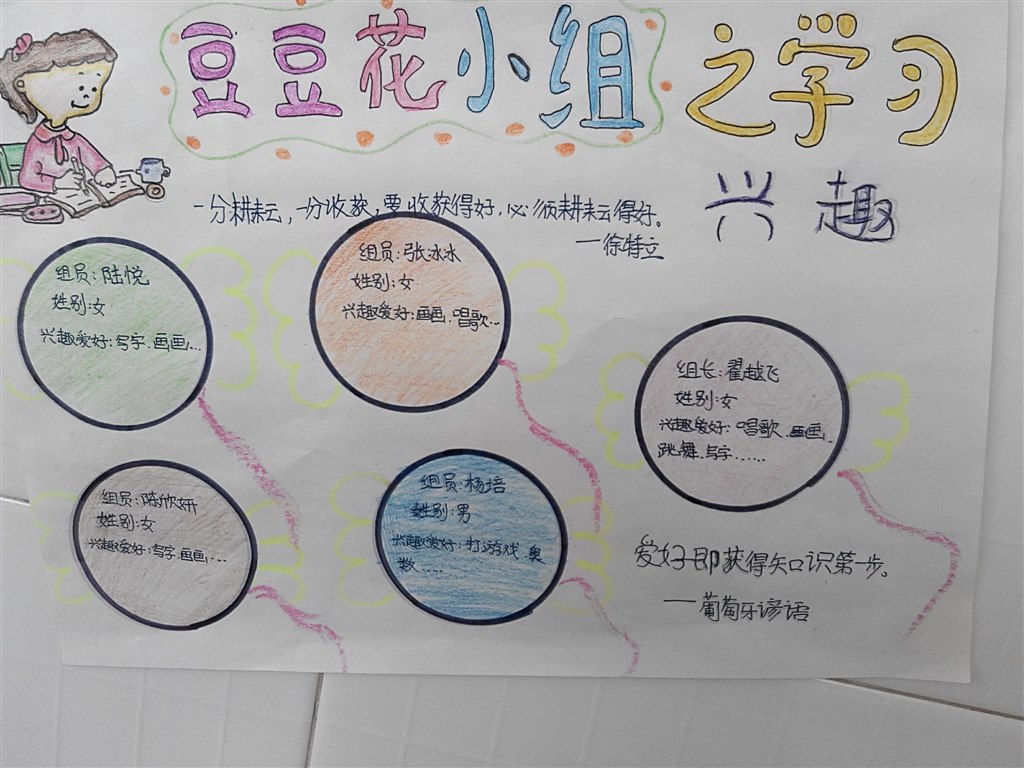 豆豆花小组之学习
兴趣
一分耕耘，一分收获，要收获得好，必须耕耘得好。
—徐特立
组员：陆悦
姓别：女
兴趣爱好：写字、画画...
组员：张冰冰
姓别：女
兴趣爱好：画画、唱歌...
组长：翟越飞
姓别：女
兴趣爱好：唱歌、画画、
跳舞、写字......
组员：陈欣妍
姓别：女
兴趣爱好：写字、画画、...
组员：杨培
姓别：男
兴趣爱好：打游戏、奥
数.....
爱好即获得知识第一步。
——葡萄牙谚语